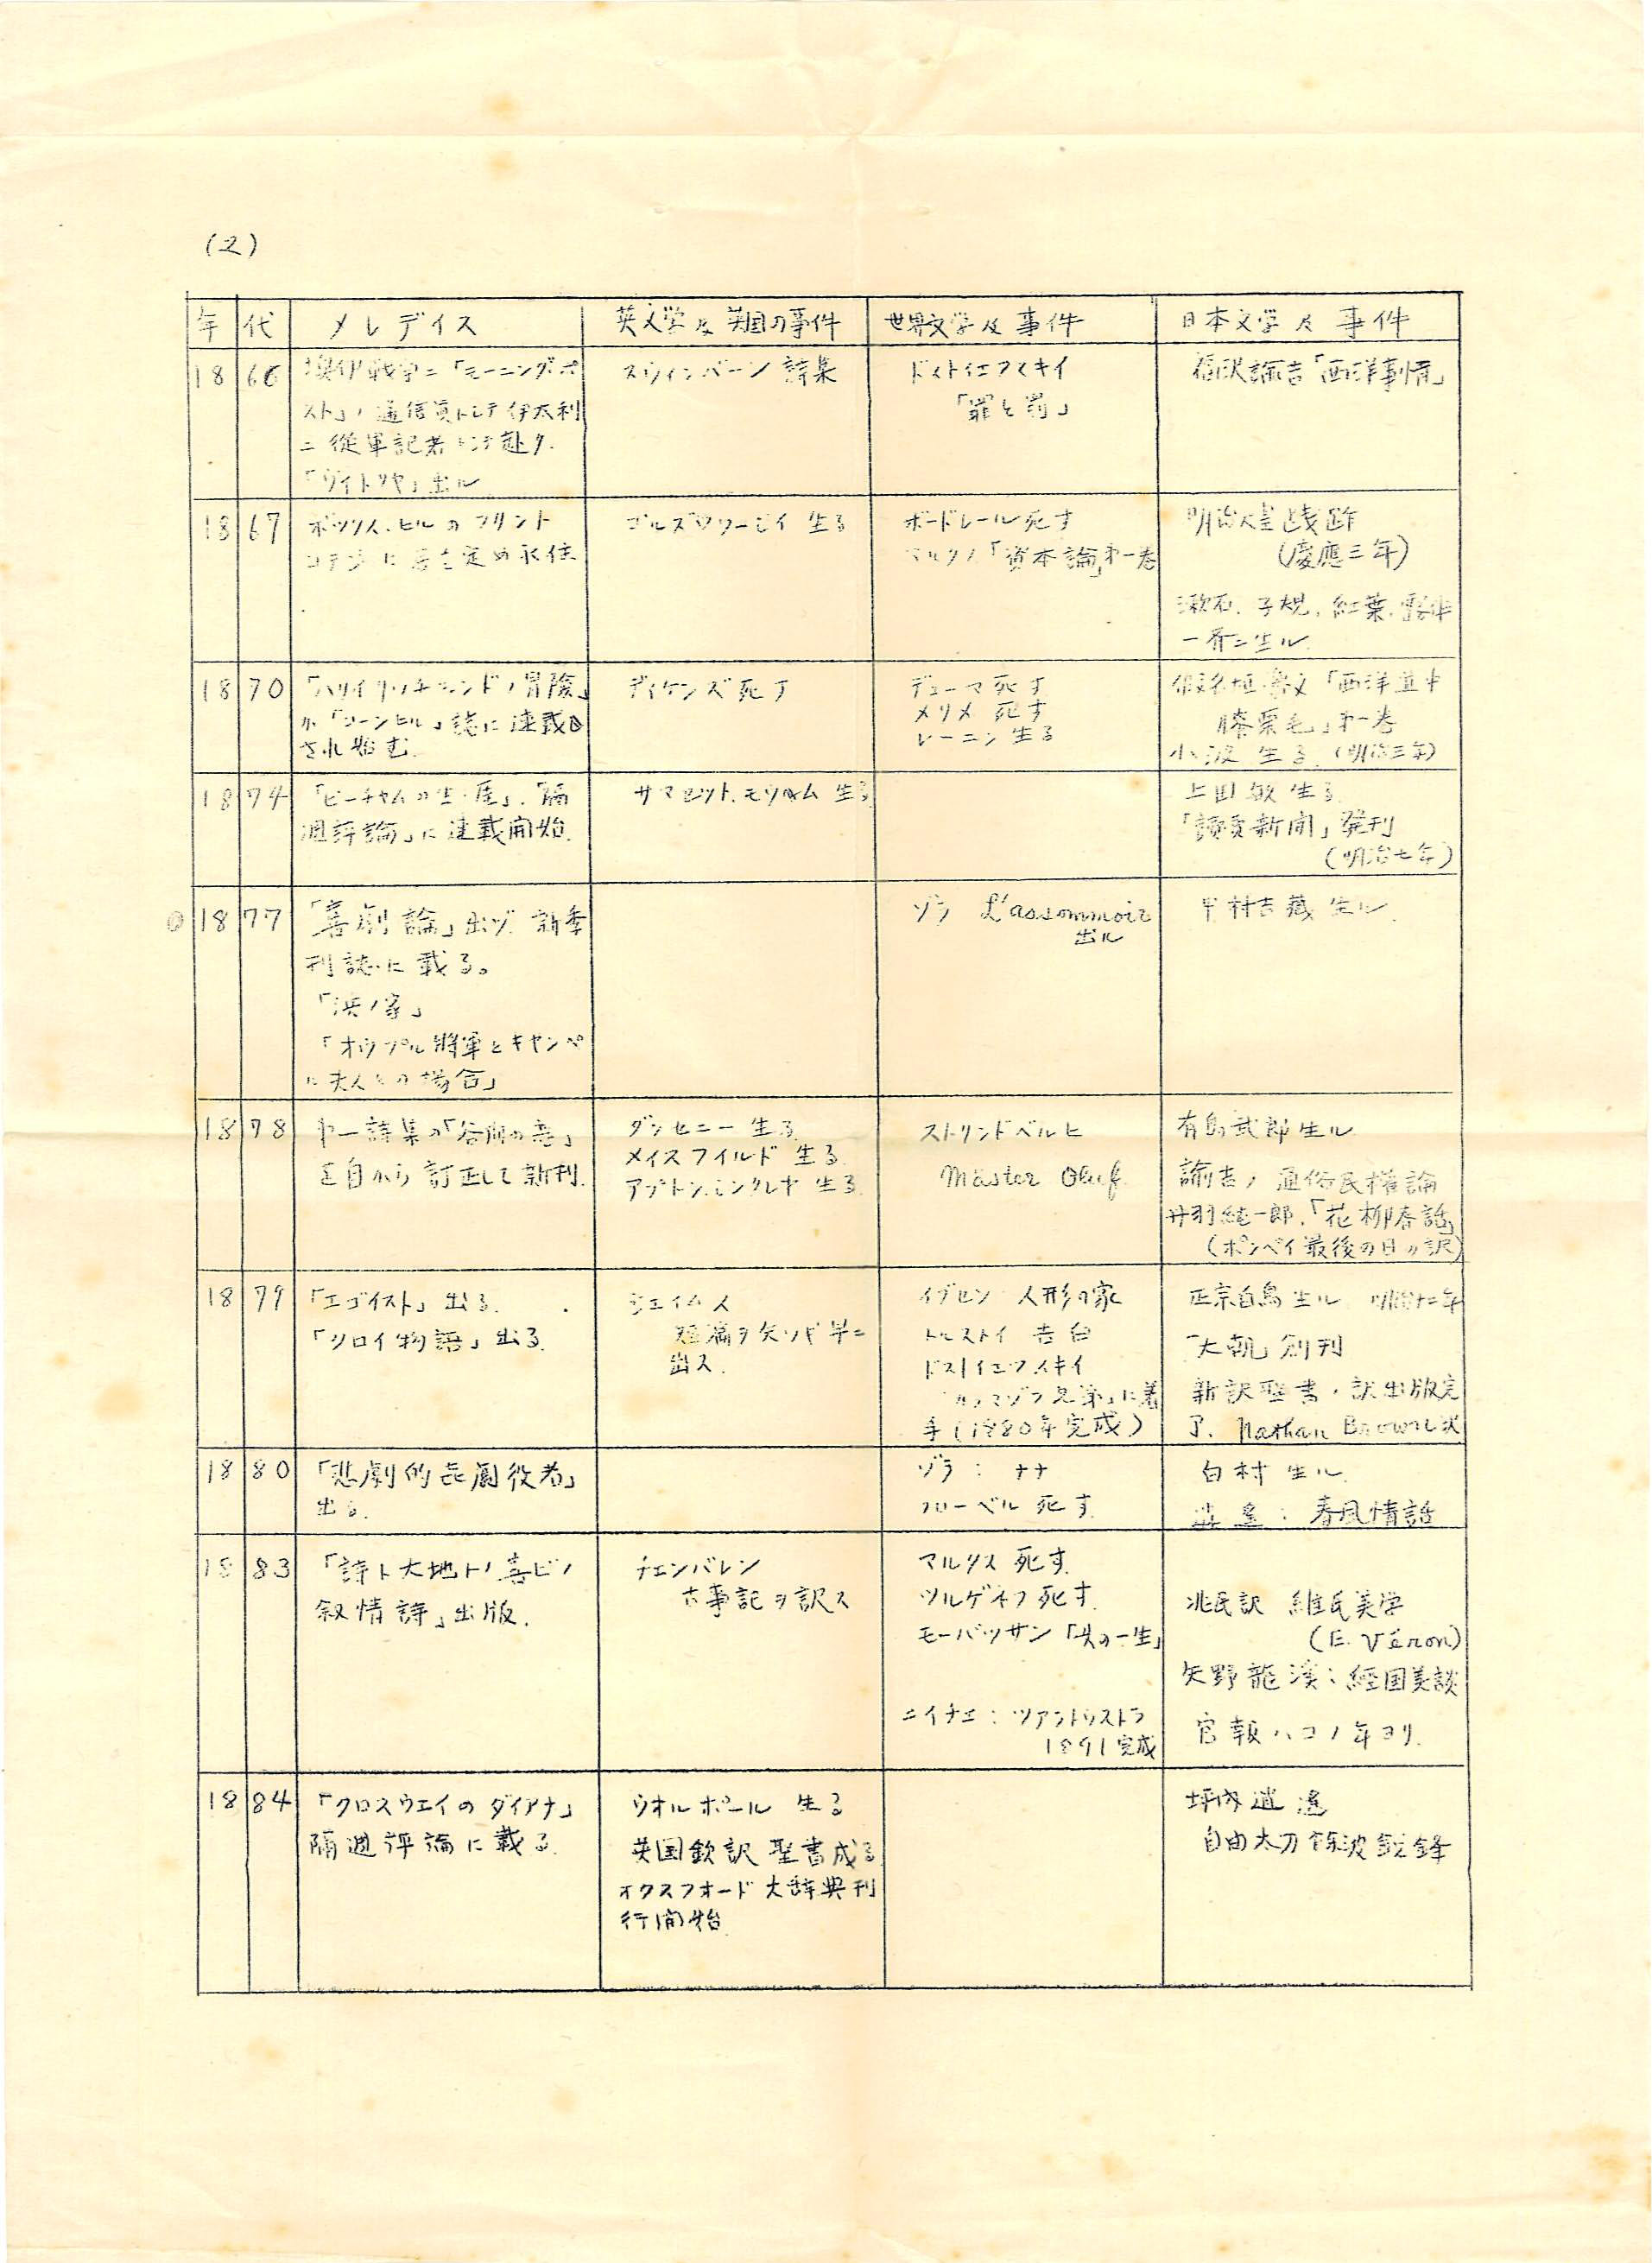 (2)
年 代 メレディス 英文学及英国の事件 世界文学及事件 日本文学及事件
18 66
墺伊戦争ニ「モーニングポ
スト」ノ通信員トシテ伊太利
ニ従軍記者トシテ赴ク.
「ヴィトリヤ」出ル
スウィンバーン 詩集
ドストイエフスキイ
「罪と罰」
福沢諭吉「西洋事情」
18 67
ボックス.ヒルのフリント
コテジに居を定め永住
ゴルズワージイ 生る
ボードレール死す
マルクス「資本論」オ一巻
明治大皇践祚
(慶應三年)
漱石.子規.紅葉.露伴
一斉ニ生ル.
18 70
「ハリイリッチモンドノ冒険」
が「コーンヒル」誌に連載
され始む.
ディケンズ死す
デューマ死す
メリメ 死す
レーニン生る
仮名垣魯文「西洋道中
膝栗毛」オ一巻
小波 生る.(明治三年)
18 74
「ビーチャムの生涯」.「隔
週評論」に連載開始.
サマセット.モウム 生る
上田敏生る.
「読賣新聞」発刊
(明治七年)
18 77
「喜劇論」出ヅ 新季
刊誌に載る。
「浜ノ家」
「オウプル将軍とキャンペ
ル夫人との場合」
ゾラ L'assommoir
出ル
中村吉蔵 生ル.
18 78
オ一詩集の「谷間の恋」
を自から訂正して新刊.
ダンセニー 生る.
メイスフイルド 生る.
アプトン.シンクレヤ 生る.
ストリンドベルヒ
Mäster Oluf.
有島武郎生ル
諭吉ノ 通俗民権論
丹羽純一郎.「花柳春話」
(ポンペイ最後の日の訳)
18 79
「エゴイスト」出る.
「クロイ物語」出る.
ジェイムス
短篇ヲ矢ツギ早ニ
出ス.
イプセン 人形の家
トルストイ 告白
ドストイエフスキイ
「カラマゾフ兄弟」に着
手(1880年完成)
正宗白鳥生ル 明治十二年
「大朝」創刊
新訳聖書ノ訳出版完
了. Nathan Brown訳
18 80
「悲劇的㐂劇役者」
出る.
ゾラ: ナナ
フローベル死す.
白村 生ル.
逍遙: 春風情話
18 83
「詩ト大地トノ喜ビノ
叙情詩」出版.
チエンバレン
古事記ヲ訳ス
マルクス 死す.
ツルゲネフ死す.
モーパッサン「女の一生」
ニイチエ: ツアラトウストラ
1891完成
兆民訳 維氏美学
(E. Véron)
矢野龍渓:經国美談
官報ハコノ年ヨリ.
18 84
「クロスウエイのダイアナ」
隔週評論に載る.
ウオルポール 生る
英国欽訳聖書成る
オクスフオード大辞典刊
行開始.
坪内逍遙
自由太刀餘波鋭鋒